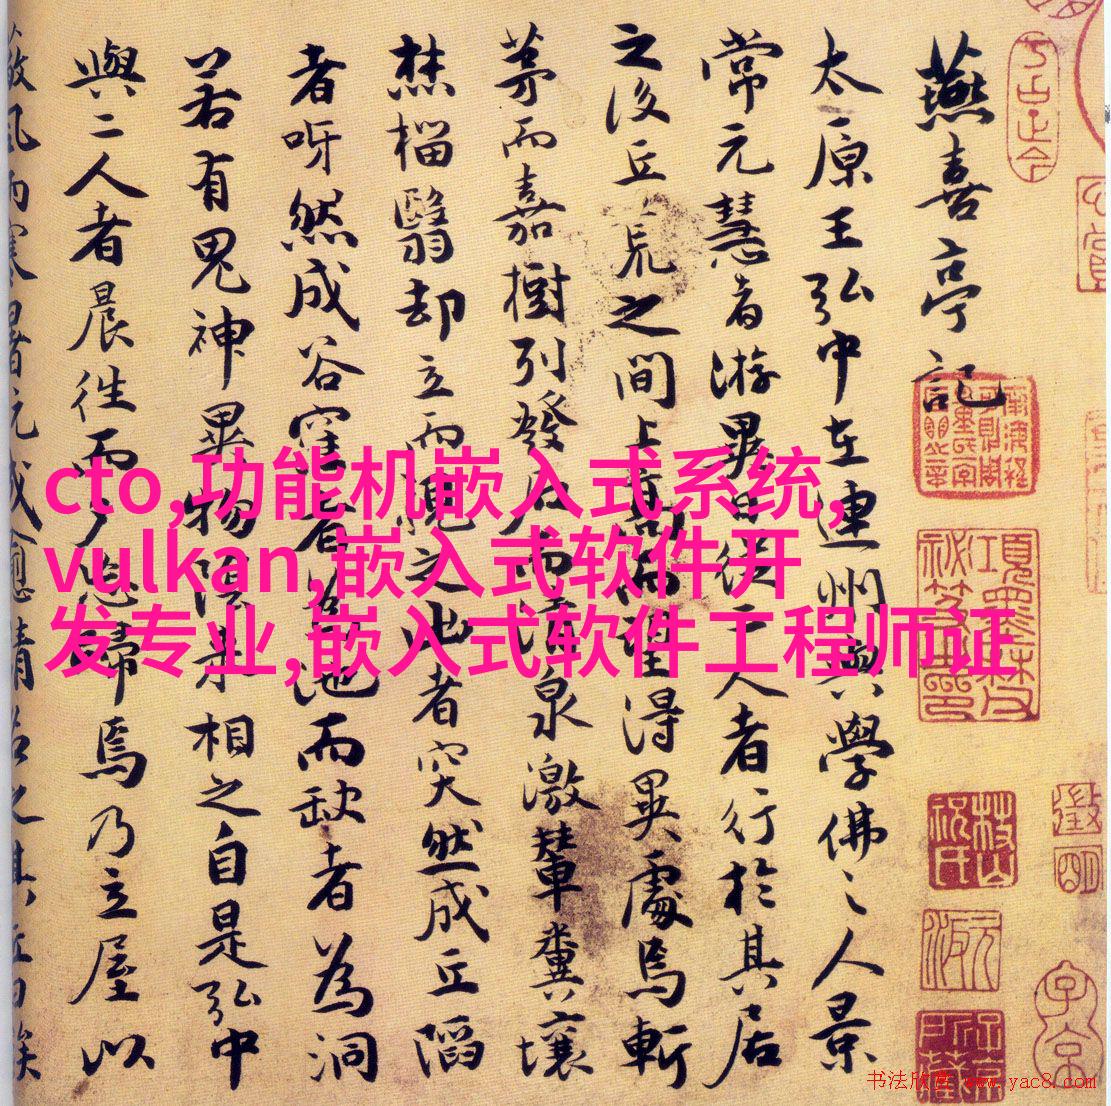 燕喜亭記
太原王弘中在連州與學佛之人景
常元慧者游異日從二人者行於其居
之後丘荒之間上高而望得異處焉斬
茅而嘉樹列發石而清泉激輦糞壤
焚榴翳却立而視之出者突然成丘陷
者呀然成谷窪者為池而缺者為洞
若有鬼神異物陰來相之自是弘中
與二人者晨往而夕忘歸焉乃立屋以
cto,功能机嵌入式系统,
vulkan,嵌入式软件开
发专业,嵌入式软件工程师证
书法欣赏 www.yac8.com